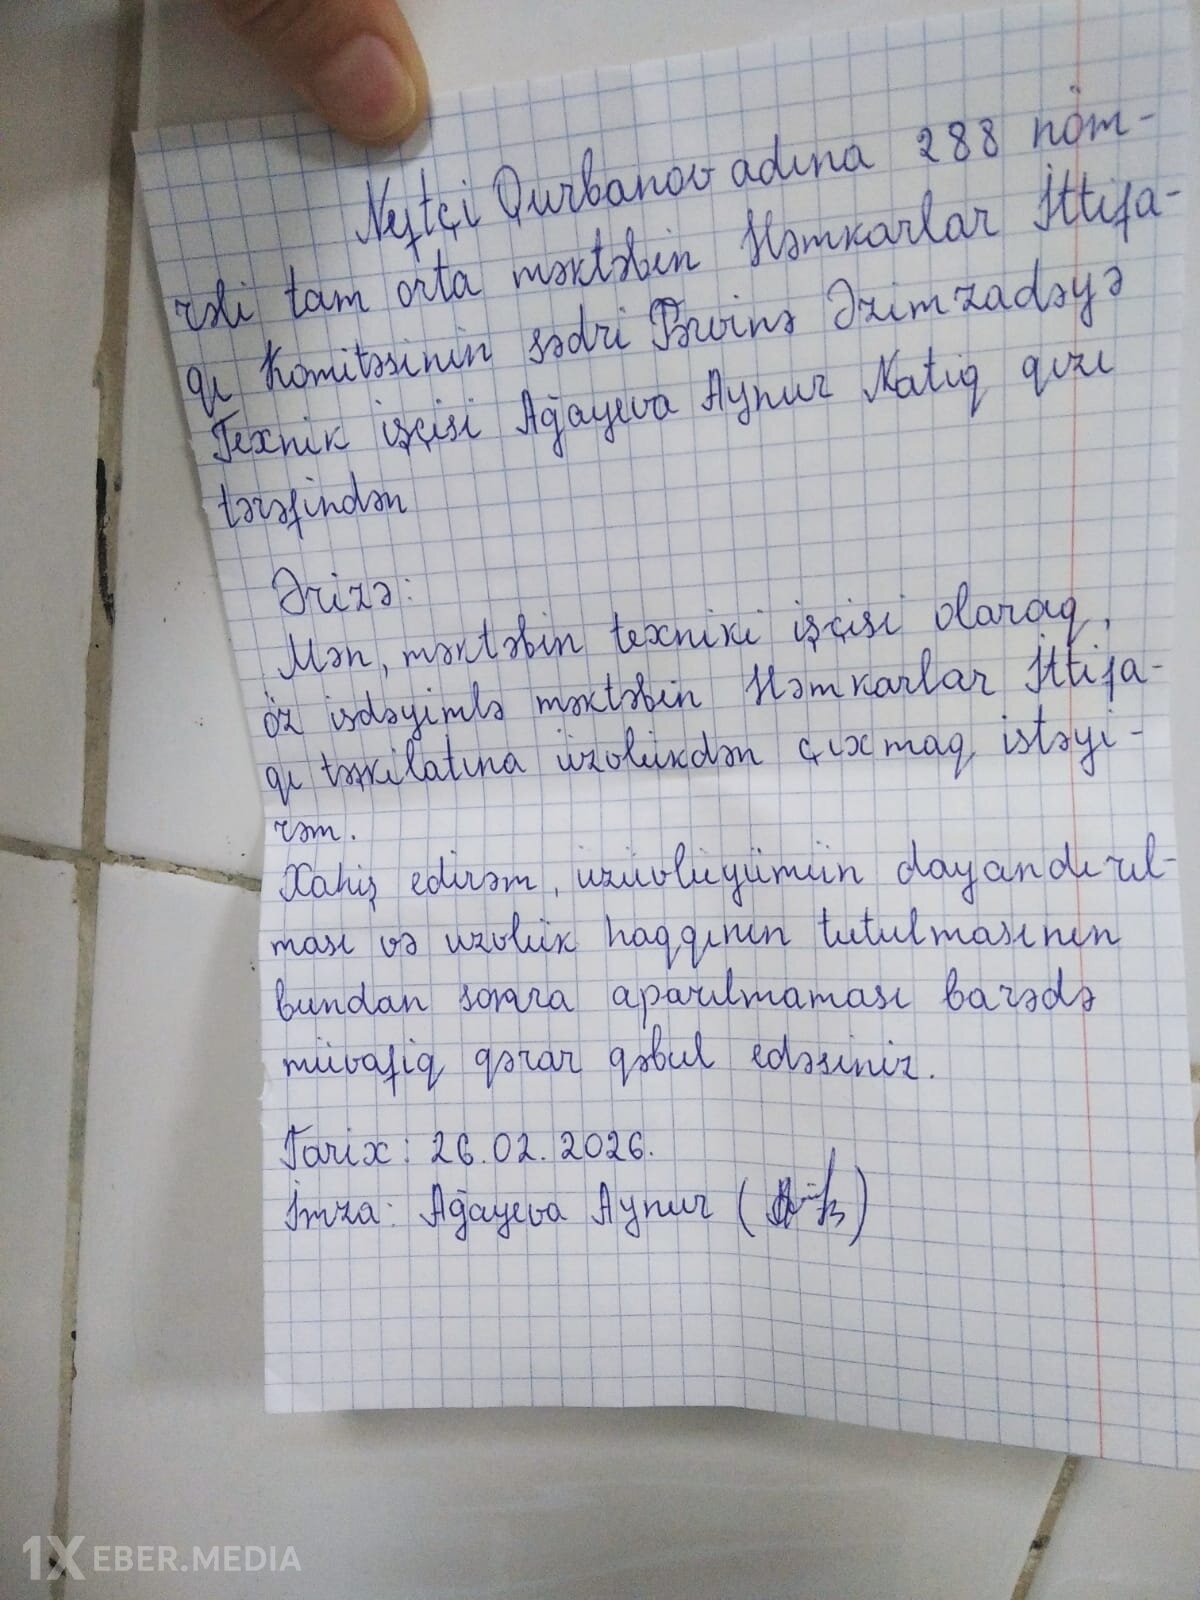 Neftçi Qurbanov adına 288 nöm-
rəli tam orta məktəbin Həmkarlar İttifa-
qı Komitəsinin sədri Pərvinə Əzimzadəyə
Texnik işçisi Ağayeva Aynur Natiq qızı
tərəfindən
Ərizə:
Mən, məktəbin texniki işçisi olaraq,
öz isdəyimlə məktəbin Həmkarlar İttifa-
qı təşkilatına üzvlükdən çıxmaq istəyi-
rəm.
Xahiş edirəm, üzüvlüyümün dayandırıl-
ması və uzvlük haqqının tutulmasının
bundan sonra aparılmaması barədə
müvafiq qərar qəbul edəsiniz.
Tarix: 26.02.2026.
İmza: Ağayeva Aynur (
)
1XEBER.MEDIA